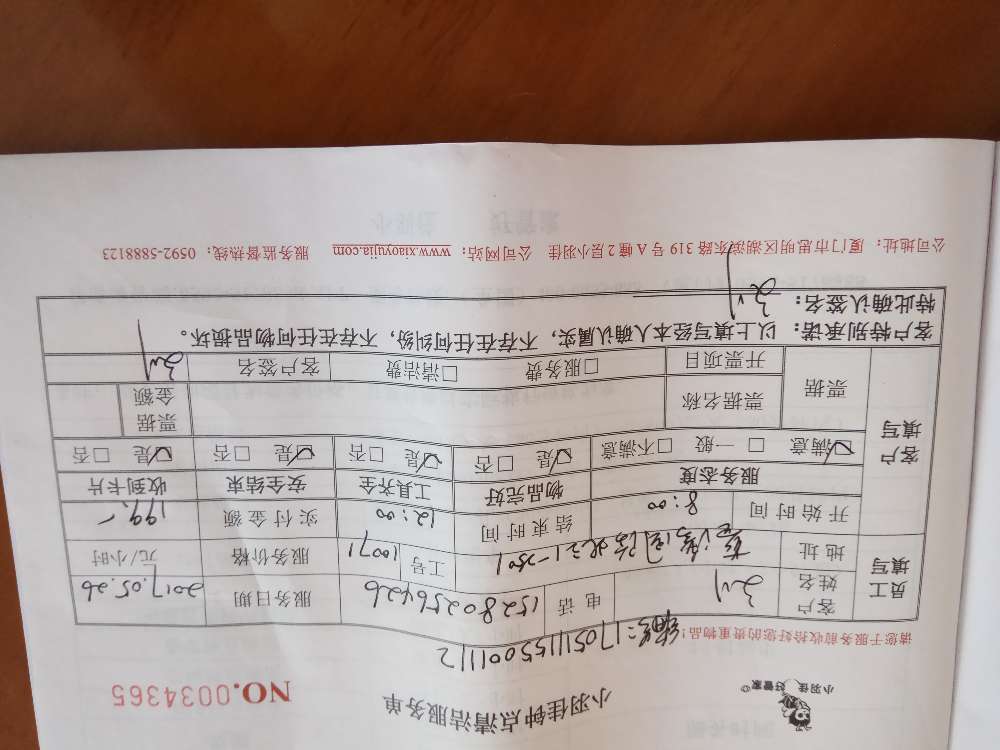 小羽佳 好管家
小羽佳钟点清洁服务单
NO.0034365
编号:17051115500112
请您于服务前收拾好您的贵重物品!
员工填写
客户姓名
电话 15280256426
服务日期 2017.05.26
地址
工号 10071
服务价格 元/小时
开始时间 8:00
结束时间 12:00
实付金额 199.-
客户填写
服务态度 物品完好 工具齐全 安全结束 收到卡片
☑满意 □一般 □不满意 ☑是 □否 ☑是 □否 ☑是 □否 ☑是 □否
票据 票据名称 票据金额
开票项目 □服务费 □清洁费 客户签名
客户特别承诺:以上填写经本人确认属实,不存在任何纠纷,不存在任何物品损坏。
特此确认签名:
公司地址:厦门市思明区湖滨东路 319 号 A 幢 2 层小羽佳 公司网站:www.xiaoyujia.com 服务监督热线:0592-5888123